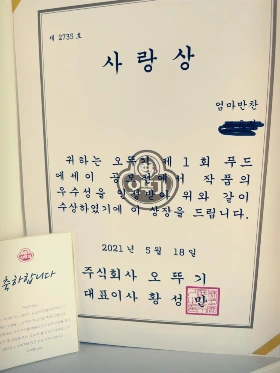 제 2735 호
사랑상
엄마반찬
귀하는 오뚜기 제1회 푸드
에세이 공모전에서 작품의
우수성을 인정받아 위와 같이
수상하였기에 이 상장을 드립니다.
2021년 5월 18일
주식회사 오뚜기
대표이사 황성만
오뚜기
축하합니다